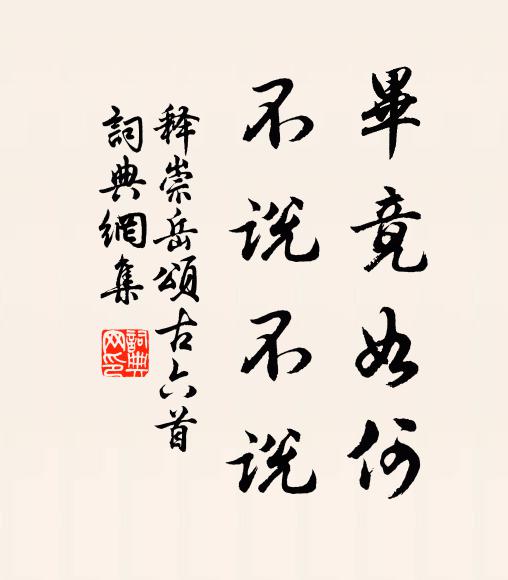 畢竟如何
不说不说
释崇岳頌古六首
詞典網集
詞典
网印